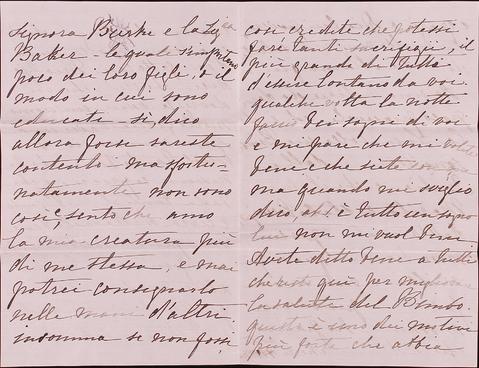 Signora Burke e la Sig.ra
Baker - le quali s'importano
poco dei loro figle, o il
modo in cui sono
educate - si, dico
allora forse sareste
contento - ma sfortu-
natamente non sono
così, sento che amo
la mia creatura più
di me stessa, e mai
potrei consegnarlo
nelle mani d'altri
insomma se non fossi
così credete che potessi
fare tanti sacrifizi, il
più grande di tutti
d'essere lontano da voi
qualche volta la notte
faccio dei sogni di voi
e mi pare che mi volete
bene e che siete
ma quando mi sveglio
dico, è tutto un sogno
lui non mi vuol bene
Avete detto bene a tutti
che resto quì per migliorare
la salute del Bimbo.
questo è uno dei motivi
più forte che abbia